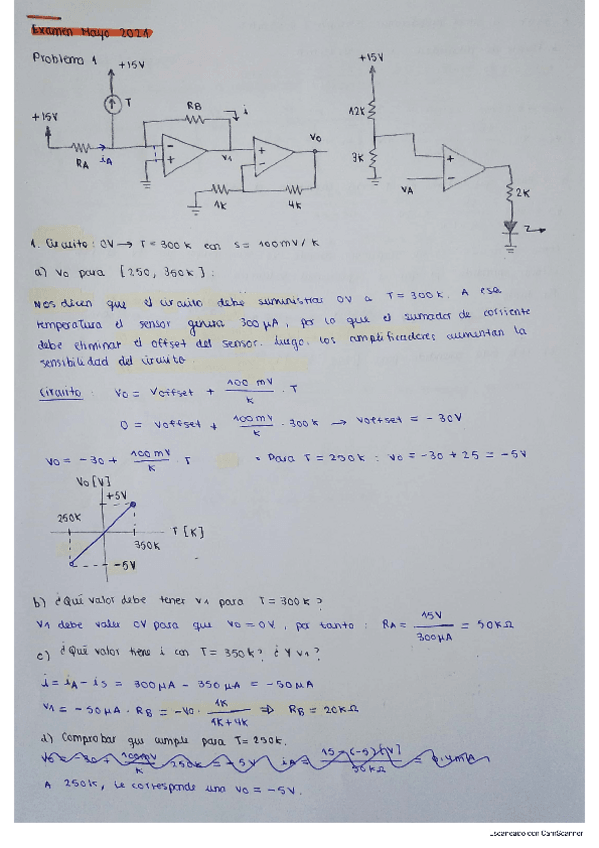 Examen Mayo 2021
Problema 1
+15V
T
+15V
RA
iA
RB
i
V1
Vo
1K
4K
+15V
12K
3K
VA
2K
1. Circuito: 0V → T = 300 K con S = 100mV/K
a) Vo para [250, 350K]:
Nos dicen que el circuito debe suministrar 0V a T = 300K. A esa
temperatura el sensor genera 300 μA, por lo que el sumador de corriente
debe eliminar el offset del sensor. Luego, los amplificadores aumentan la
sensibilidad del circuito.
Circuito: Vo = Voffset + 100 mV/K · T
0 = Voffset + 100mV/K · 300K → Voffset = -30V
Vo = -30 + 100mV/K T • Para T = 250K: Vo = -30 + 25 = -5V
Vo [V]
+5V
250K
T [K]
350K
-5V
b) ¿Qué valor debe tener V1 para T = 300K?
V1 debe valer 0V para que Vo = 0V, por tanto: RA = 15V/300μA = 50KΩ
c) ¿Qué valor tiene i con T = 350K? ¿Y V1?
i = iA - is = 300μA - 350μA = -50μA
V1 = -50μA · RB = -Vo · 1K/1K+4K ⇒ RB = 20KΩ
d) Comprobar que cumple para T = 250K.
Vo = -30 + 100mV/K 250K = -5V iA = 15-(-5)[V]/50KΩ = 0.4mA
A 250K, le corresponde una Vo = -5V.
Escaneado con CamScanner